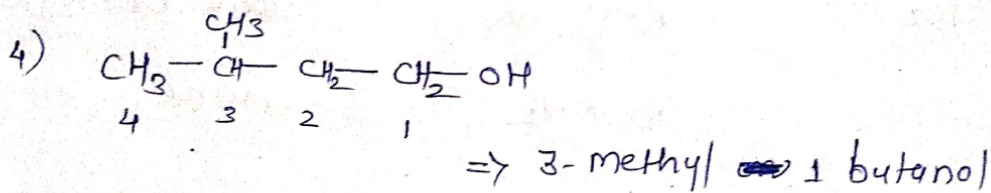 4) CH3
CH3 — CH — CH2 — CH2 — OH
4 3 2 1
=> 3-methyl 1 butanol